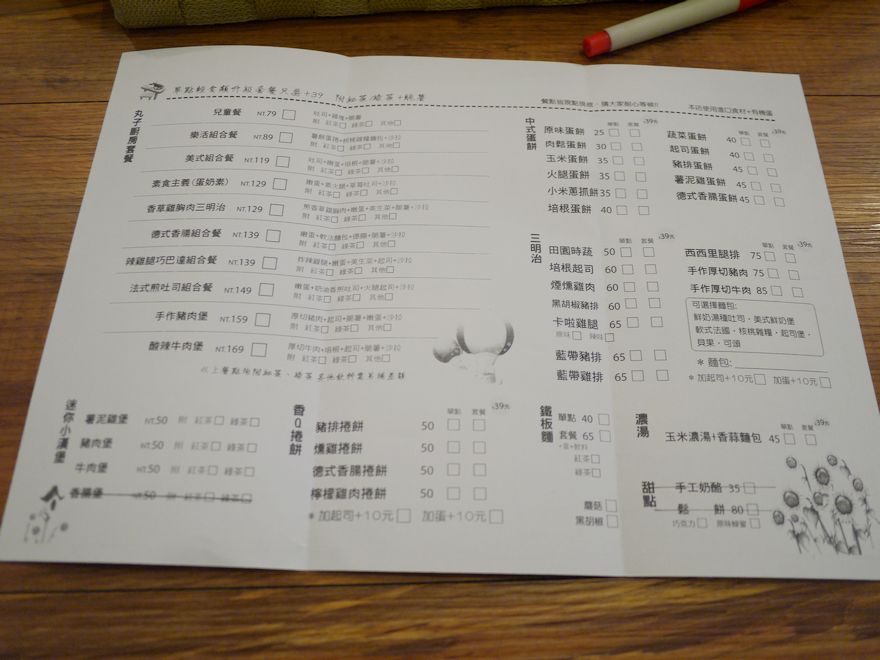 單點輕食類升級套餐只要+39 附紅茶/綠茶+脆薯
餐點皆現點現做，請大家耐心等候!!
本店使用進口食材+有機蛋
丸子廚房套餐
兒童餐 NT.79
吐司+雞塊+脆薯
附 紅茶 綠茶 其他
樂活組合餐 NT.89
薯餅蛋捲+核桃雜糧麵包+沙拉
附 紅茶 綠茶 其他
美式組合餐 NT.119
吐司+嫩蛋+培根+脆薯+沙拉
附 紅茶 綠茶 其他
素食主義(蛋奶素) NT.129
嫩蛋+素火腿+草莓吐司+沙拉
附 紅茶 綠茶 其他
香草雞胸肉三明治 NT.129
煎香草雞胸肉+嫩蛋+美生菜+脆薯+沙拉
附 紅茶 綠茶 其他
德式香腸組合餐 NT.139
嫩蛋+軟法麵包+德腸+脆薯+沙拉
附 紅茶 綠茶 其他
辣雞腿巧巴達組合餐 NT.139
炸辣雞腿+嫩蛋+美生菜+脆薯+沙拉
附 紅茶 綠茶 其他
法式煎吐司組合餐 NT.149
嫩蛋+奶油香煎吐司+火腿起司+沙拉
附 紅茶 綠茶 其他
手作豬肉堡 NT.159
厚切豬肉+起司+脆薯+嫩蛋+沙拉
附 紅茶 綠茶 其他
酸辣牛肉堡 NT.169
厚切牛肉+培根+起司+脆薯+沙拉
附 紅茶 綠茶 其他
以上餐點均附紅茶、綠茶
中式蛋餅
單點 套餐 +39元
原味蛋餅 25
肉鬆蛋餅 30
玉米蛋餅 35
火腿蛋餅 35
小米蔥抓餅 35
培根蛋餅 40
單點 套餐 +39元
蔬菜蛋餅 40
起司蛋餅 40
豬排蛋餅 45
薯泥雞蛋餅 45
德式香腸蛋餅 45
三明治
單點 套餐 +39元
田園時蔬 50
培根起司 60
煙燻雞肉 60
黑胡椒豬排 60
卡啦雞腿 65
原味 辣味
藍帶豬排 65
藍帶雞排 65
單點 套餐 +39元
西西里腿排 75
手作厚切豬肉 75
手作厚切牛肉 85
可選擇麵包:
鮮奶湯種吐司、美式鮮奶堡
軟式法國、核桃雜糧、起司堡、
貝果、可頌
* 麵包:
* 加起司+10元 加蛋+10元
迷你小漢堡
薯泥雞堡 NT.50 附 紅茶 綠茶
豬肉堡 NT.50 附 紅茶 綠茶
牛肉堡 NT.50 附 紅茶 綠茶
香腸堡 NT.50 附 紅茶 綠茶
香Q捲餅
單點 套餐 +39元
豬排捲餅 50
燻雞捲餅 50
德式香腸捲餅 50
檸檬雞肉捲餅 50
* 加起司+10元 加蛋+10元
鐵板麵
單點 40
套餐 65
+蛋+飲料
紅茶
綠茶
蘑菇
黑胡椒
濃湯
單點 套餐 +39元
玉米濃湯+香蒜麵包 45
甜點
手工奶酪 35
鬆 餅 80
巧克力 原味蜂蜜